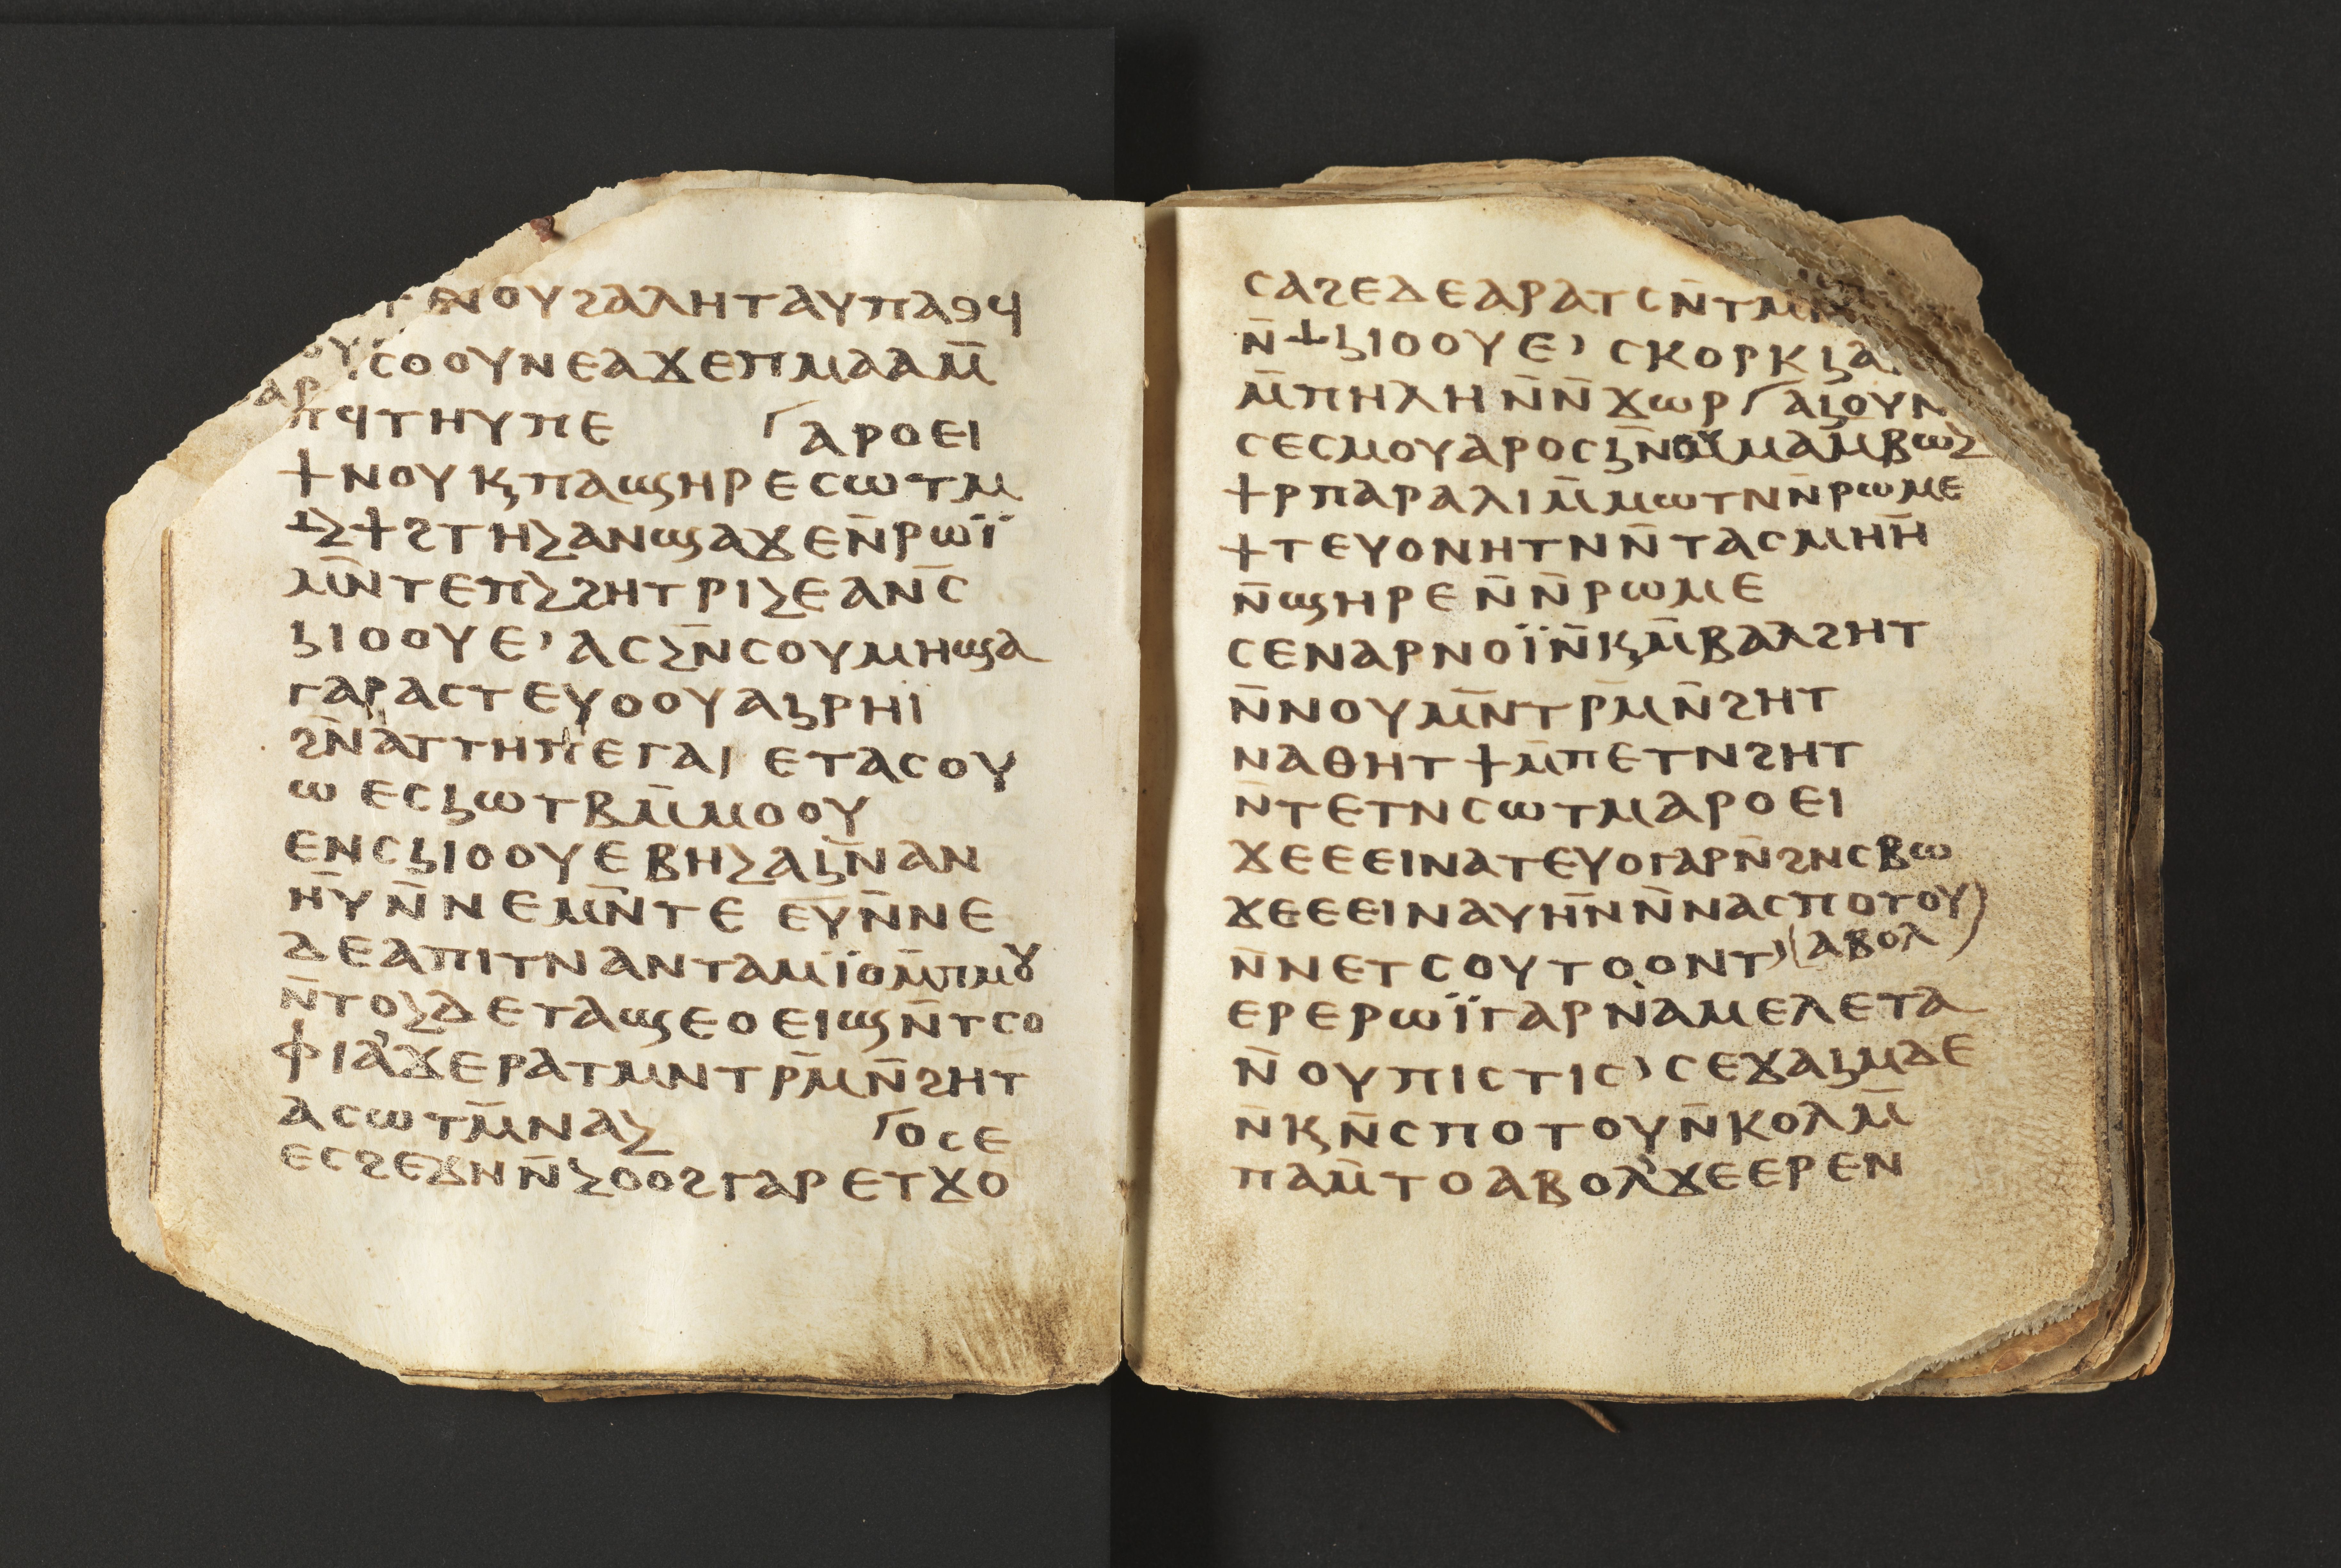 ⲧⲉⲛⲟⲩϩⲁⲗⲏⲧⲁⲩⲡⲁⳋϥ
ⲥⲟⲟⲩⲛⲉⲁϫⲉⲡⲙⲁⲁⲙ̅
ⲡϥⲧⲏⲩⲡⲉ ⲁⲣⲟⲉⲓ
ϯⲛⲟⲩϗⲡⲁϣⲏⲣⲉⲥⲱⲧⲙ
ⲳⲹϯϩⲧⲏⲹⲁⲛϣⲁϫⲉⲛ̅ⲣⲱⲓ̈
ⲙⲛ̅ⲧⲉⲡⲹϩⲏⲧⲣⲓⲹⲉⲁⲛ̅ⲥ
ⳉⲓⲟⲟⲩⲉ’ⲁⲥⲹⲛ̅ⲥⲟⲩⲙⲏϣⲁ
ⲅⲁⲣⲁⲥⲧⲉⲩⲟⲟⲩⲁⳉⲣⲏⲓ
ϩⲛ̅ⲁⲧⲧⲏⲡⲉⲅⲁⲓ ⲉⲧⲁⲥⲟⲩ
ⲱ ⲉⲥⳉⲱⲧⲃⲙ̅ⲙⲟⲟⲩ
ⲉⲛⲥⳉⲓⲟⲟⲩⲉⲃⲏⲹⲁⳉⲛ̅ⲁⲛ
ⲏ̅ⲩⲛ̅ⲛⲉⲙⲛ̅ⲧⲉ ⲉⲩⲛ̅ⲛⲉ
ⲇⲉⲁⲡⲓⲧⲛⲁⲛⲧⲁⲙⲓ̈ⲟⲙ̅ⲡⲙⲟⲩ
ⲛ̅ⲧⲟⲹⲇⲉⲧⲁϣⲉⲟⲉⲓϣⲛ̅ⲧⲥⲟ
ⲫⲓⲁ’ϫⲉⲣⲁⲧⲙⲛⲧⲣⲙ̅ⲛ̅ϩⲏⲧ
ⲁⲥⲱⲧⲙ̅ⲛⲁⲹ ⲟⲥⲉ
ⲉⲥϩⲉϫⲛⲛ̅ⲹⲟⲟϩⲅⲁⲣⲉⲧϫⲟ
ⲥⲁϩⲉⲇⲉⲁⲣⲁⲧⲥⲛ̅ⲧⲙⲏ
ⲛ̅ⲳⳉⲓⲟⲟⲩⲉ’ ⲥⲕⲟⲣⲕⳉⲁ
ⲙ̅ⲡⲏⲗⲏⲛ̅ⲛ̅ϫⲱⲣ ⲁⳉⲟⲩⲛ
ⲥⲉⲥⲙⲟⲩⲁⲣⲟⲥⳉⲛ̅ⲟⲩⲙⲁⲙ̅ⲃⲱⲹ
ϯⲣⲡⲁⲣⲁⲗⲓⲙ̅ⲙⲱⲧⲛⲛ̅ⲣⲱⲙⲉ
ϯⲧⲉⲩⲟⲛⲏⲧⲛⲛ̅ⲧⲁⲥⲙⲏⲏ̅
ⲛ̅ϣⲏⲣⲉⲛ̅ⲛ̅ⲣⲱⲙⲉ
ⲥⲉⲛⲁⲣⲛⲟⲓ̈ⲛ̅ϗⲙ̅ⲃⲁⲗϩⲏⲧ
ⲛ̅ⲛⲟⲩⲙⲛ̅ⲧⲣⲙ̅ⲛ̅ϩⲏⲧ
ⲛⲁⲑⲏⲧϯⲙ̅ⲡⲉⲧⲛϩⲏⲧ
ⲛ̅ⲧⲉⲧⲛⲥⲱⲧⲙⲁⲣⲟⲉⲓ
ϫⲉⲉⲉⲓⲛⲁⲧⲉⲩⲟⲅⲁⲣⲛ̅ϩⲛⲥⲃⲱ
ϫⲉⲉⲉⲓⲛⲁⲩⲏ̅ⲛⲛ̅ⲛⲁⲥⲡⲟⲧⲟⲩ
ⲛ̅ⲛⲉⲧⲥⲟⲩⲧⲟⲟⲛⲧ’ ⲁⲃⲟⲗ
ⲉⲣⲉⲣⲱⲓ̈ⲅⲁⲣⲛ̀ⲁⲙⲉⲗⲉⲧⲁ
ⲛ̅ⲟⲩⲡⲓⲥⲧⲓⲥ’ⲥⲉϫⲁⳉⲙⲇⲉ
ⲛ̅ϗⲛ̅ⲥⲡⲟⲧⲟⲩⲛ̅ⲕⲟⲗⲙ̅
ⲡⲁⲙ̅ⲧⲟⲁⲃⲟⲗ’ϫⲉⲉⲣⲉⲛ